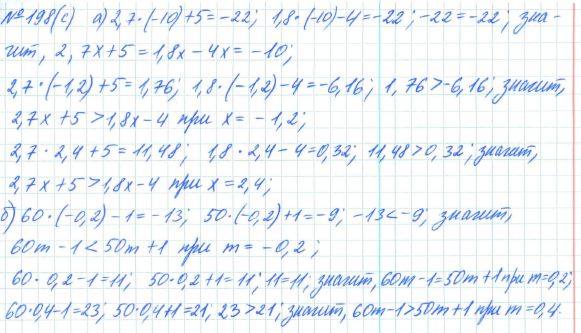 №198(с) а) 2,7·(-10)+5=-22; 1,8·(-10)-4=-22; -22=-22; зна-
чит, 2,7x+5=1,8x-4x=-10;
2,7·(-1,2)+5=1,76; 1,8·(-1,2)-4=-6,16; 1,76>-6,16; значит,
2,7x+5>1,8x-4 при x=-1,2;
2,7·2,4+5=11,48; 1,8·2,4-4=0,32; 11,48>0,32; значит,
2,7x+5>1,8x-4 при x=2,4;
б) 60·(-0,2)-1=-13; 50·(-0,2)+1=-9; -13<-9; значит,
60m-1<50m+1 при m=-0,2;
60·0,2-1=11; 50·0,2+1=11; 11=11; значит, 60m-1=50m+1 при m=0,2;
60·0,4-1=23; 50·0,4+1=21; 23>21; значит, 60m-1>50m+1 при m=0,4.